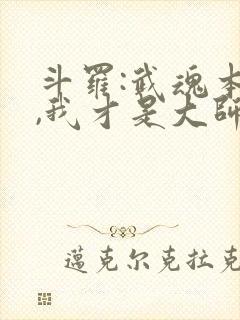 斗羅:武魂本
,我才是大師
邁克尔克拉克